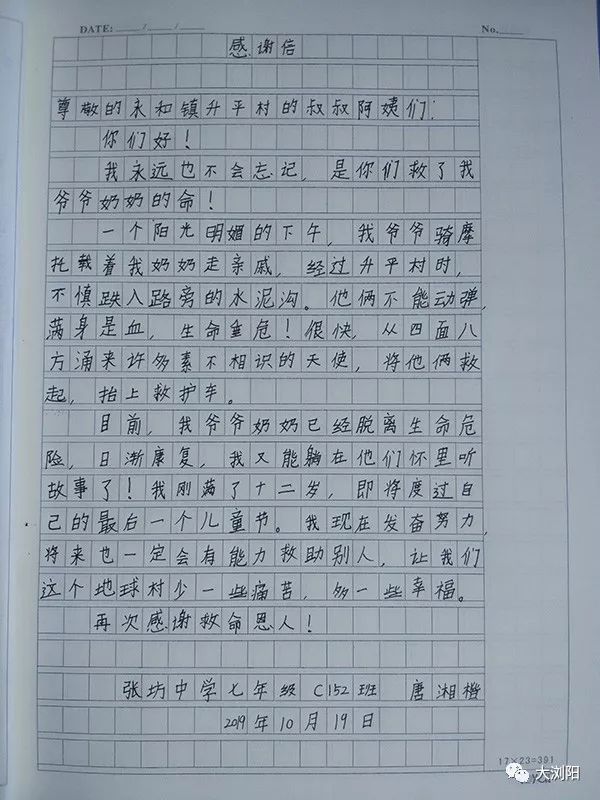 DATE: / /
No.
感谢信
尊敬的永和镇升平村的叔叔阿姨们:
你们好!
我永远也不会忘记,是你们救了我
爷爷奶奶的命!
一个阳光明媚的下午,我爷爷骑摩
托载着我奶奶走亲戚,经过升平村时,
不慎跌入路旁的水泥沟。他俩不能动弹,
满身是血,生命垂危!很快,从四面八
方涌来许多素不相识的天使,将他俩救
起,抬上救护车。
目前,我爷爷奶奶已经脱离生命危
险,日渐康复,我又能躺在他们怀里听
故事了!我刚满了十二岁,即将度过自
己的最后一个儿童节。我现在发奋努力,
将来也一定会有能力救助别人,让我们
这个地球村少一些痛苦,多一些幸福。
再次感谢救命恩人!
张坊中学七年级 C152班 唐湘橙
2019年10月19日
17×23=391
大浏阳